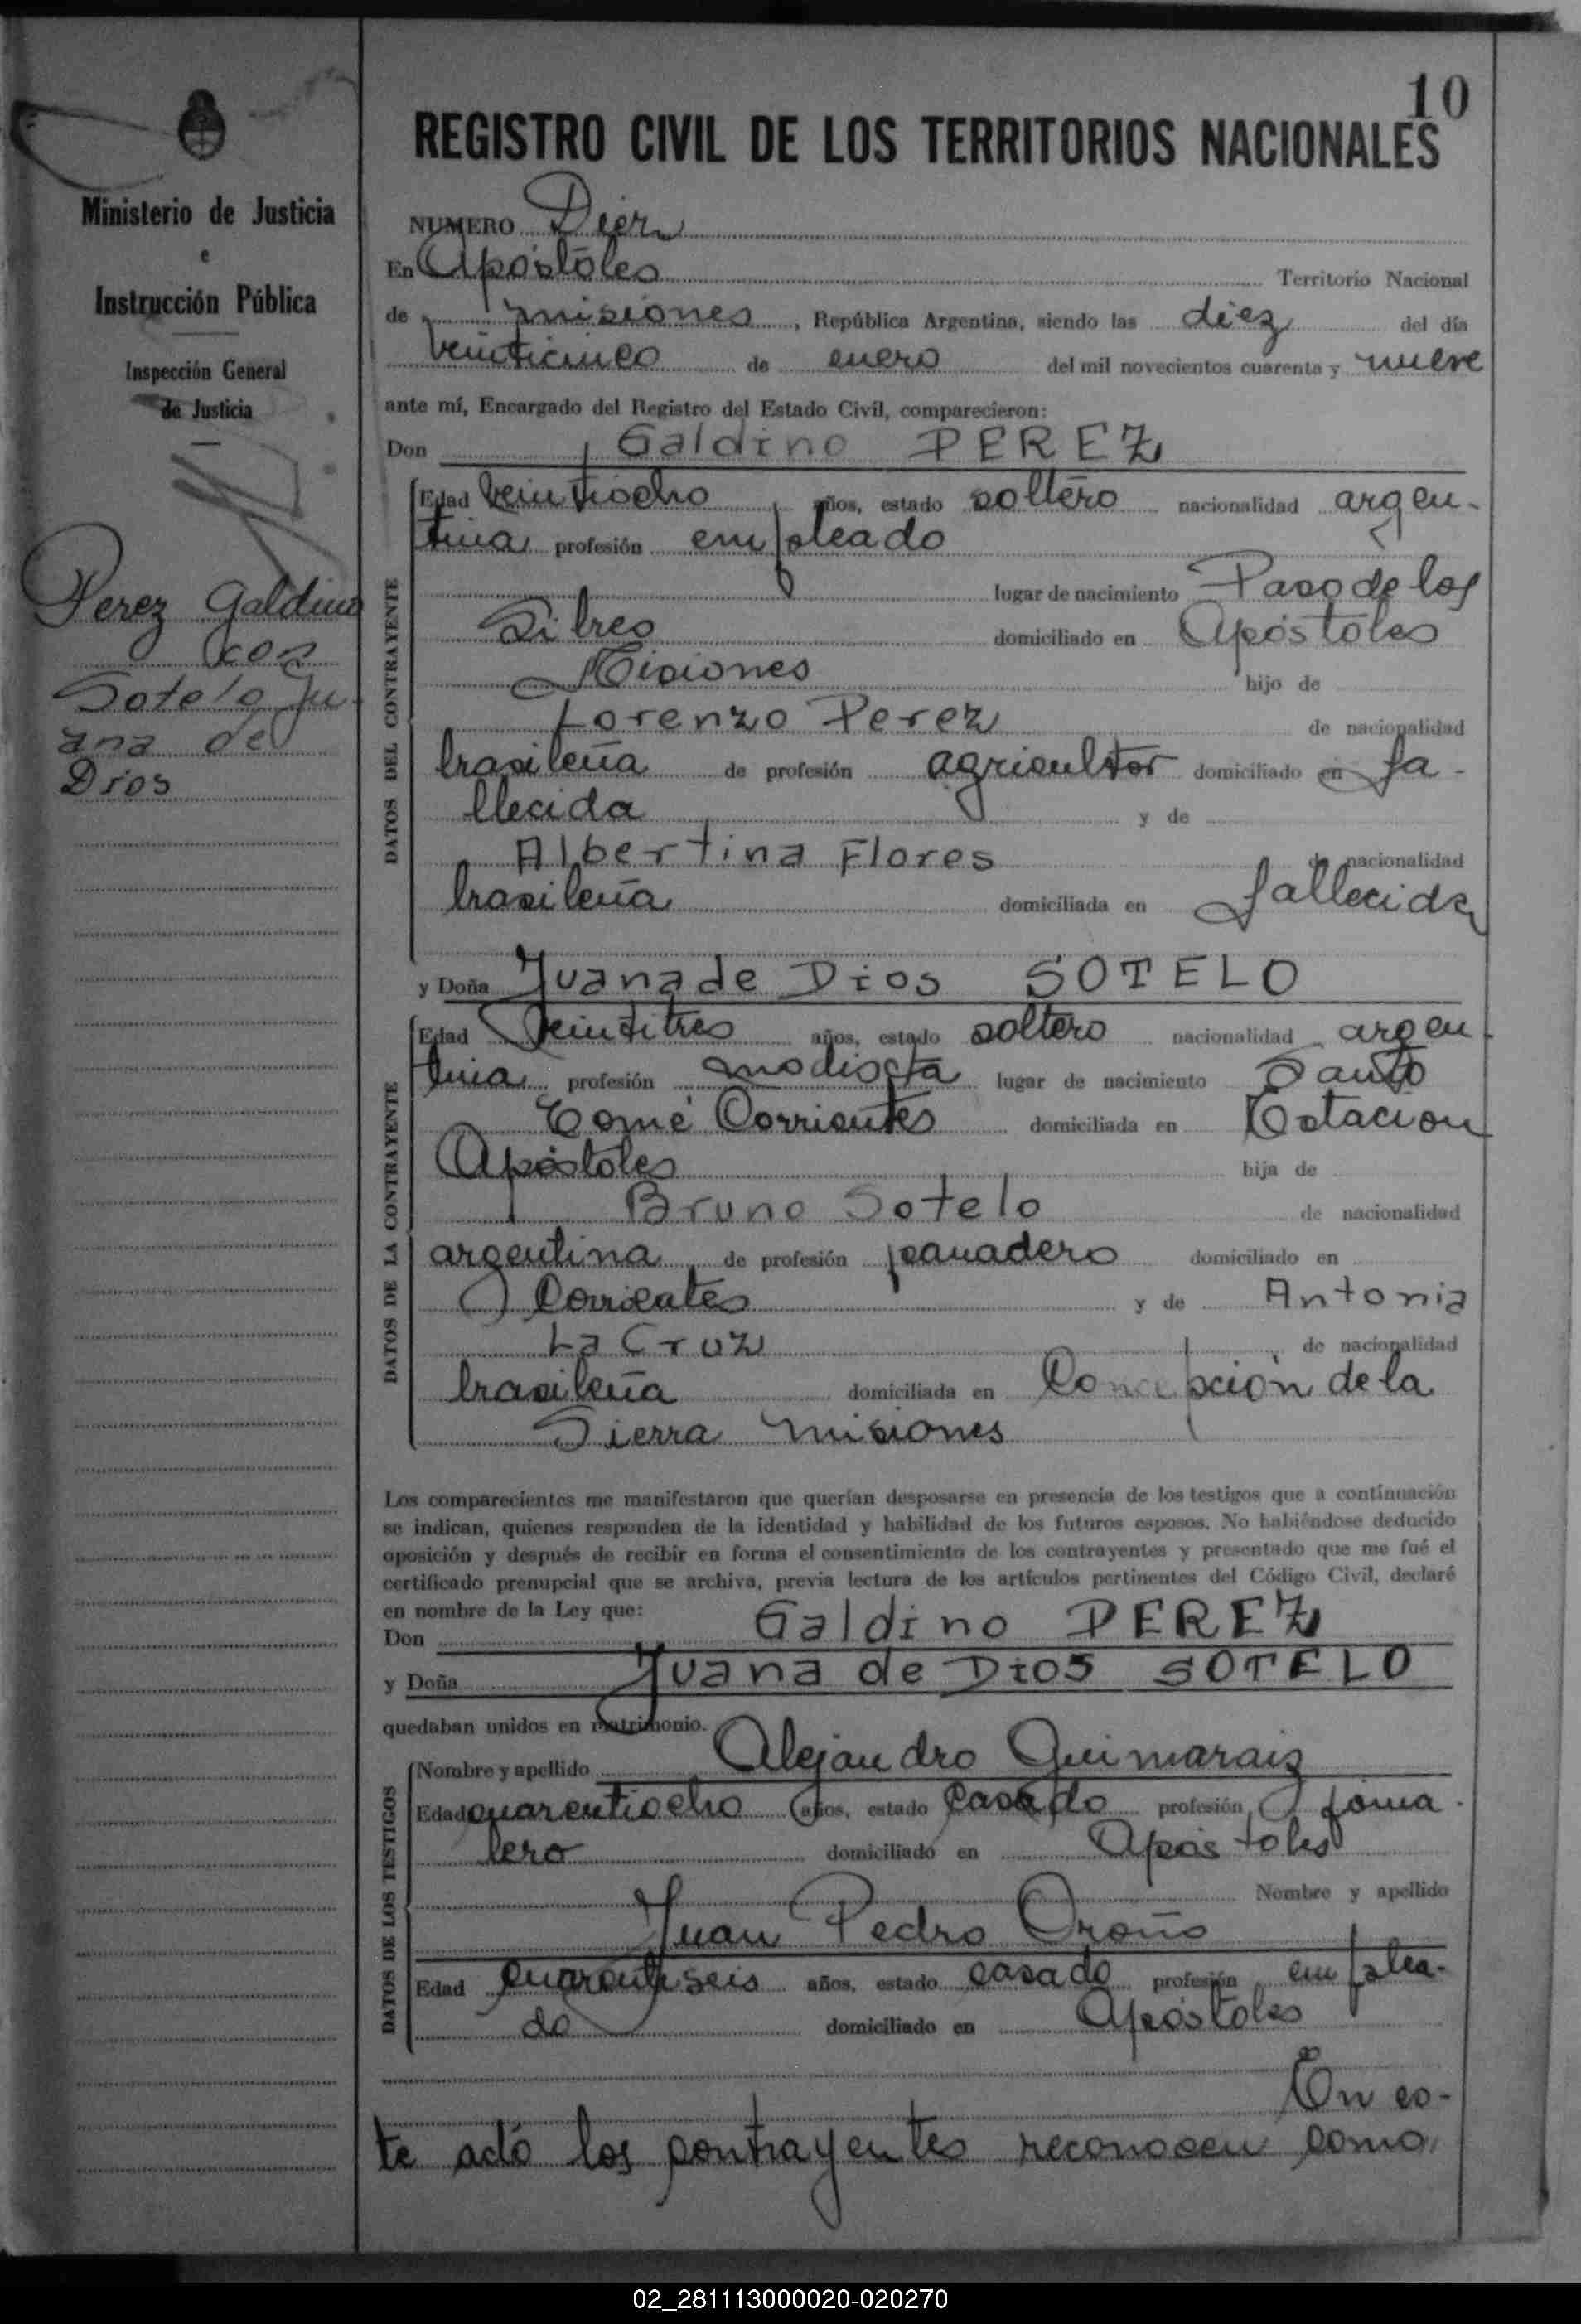 10
REGISTRO CIVIL DE LOS TERRITORIOS NACIONALES
Ministerio de Justicia
e
Instrucción Pública
Inspección General
de Justicia
Perez Galdino
con
Sotelo Ju
ana de
Dios
NUMERO Diez
En Apóstoles Territorio Nacional
de misiones, República Argentina, siendo las diez del día
veinticinco de enero del mil novecientos cuarenta y nueve
ante mí, Encargado del Registro del Estado Civil, comparecieron:
Don Galdino PEREZ
DATOS DEL CONTRAYENTE
Edad veintiocho años, estado soltero nacionalidad argen-
tina profesión empleado
lugar de nacimiento Paso de los
Libres domiciliado en Apóstoles
Misiones hijo de
Lorenzo Perez de nacionalidad
brasileña de profesión agricultor domiciliado en fa-
llecida y de
Albertina Flores de nacionalidad
brasileña domiciliada en fallecida
y Doña Juana de Dios SOTELO
DATOS DE LA CONTRAYENTE
Edad veintitres años, estado soltero nacionalidad argen-
tina profesión modista lugar de nacimiento Santo
Tomé Corrientes domiciliada en Estacion
Apóstoles hija de
Bruno Sotelo de nacionalidad
argentina de profesión panadero domiciliado en
Corrientes y de Antonia
La Cruz de nacionalidad
brasileña domiciliada en Concepción de la
Sierra misiones
Los comparecientes me manifestaron que querían desposarse en presencia de los testigos que a continuación
se indican, quienes responden de la identidad y habilidad de los futuros esposos. No habiéndose deducido
oposición y después de recibir en forma el consentimiento de los contrayentes y presentado que me fué el
certificado prenupcial que se archiva, previa lectura de los artículos pertinentes del Código Civil, declaré
en nombre de la Ley que:
Don Galdino PEREZ
y Doña Juana de Dios SOTELO
quedaban unidos en matrimonio.
DATOS DE LOS TESTIGOS
Nombre y apellido Alejandro Guimaraiz
Edad cuarentiocho años, estado casado profesión jorna-
lero domiciliado en Apóstoles
Nombre y apellido
Juan Pedro Oroño
Edad cuarentiseis años, estado casado profesión emplea-
do domiciliado en Apóstoles
En es-
te acto los contrayentes reconocen como
02_281113000020-020270